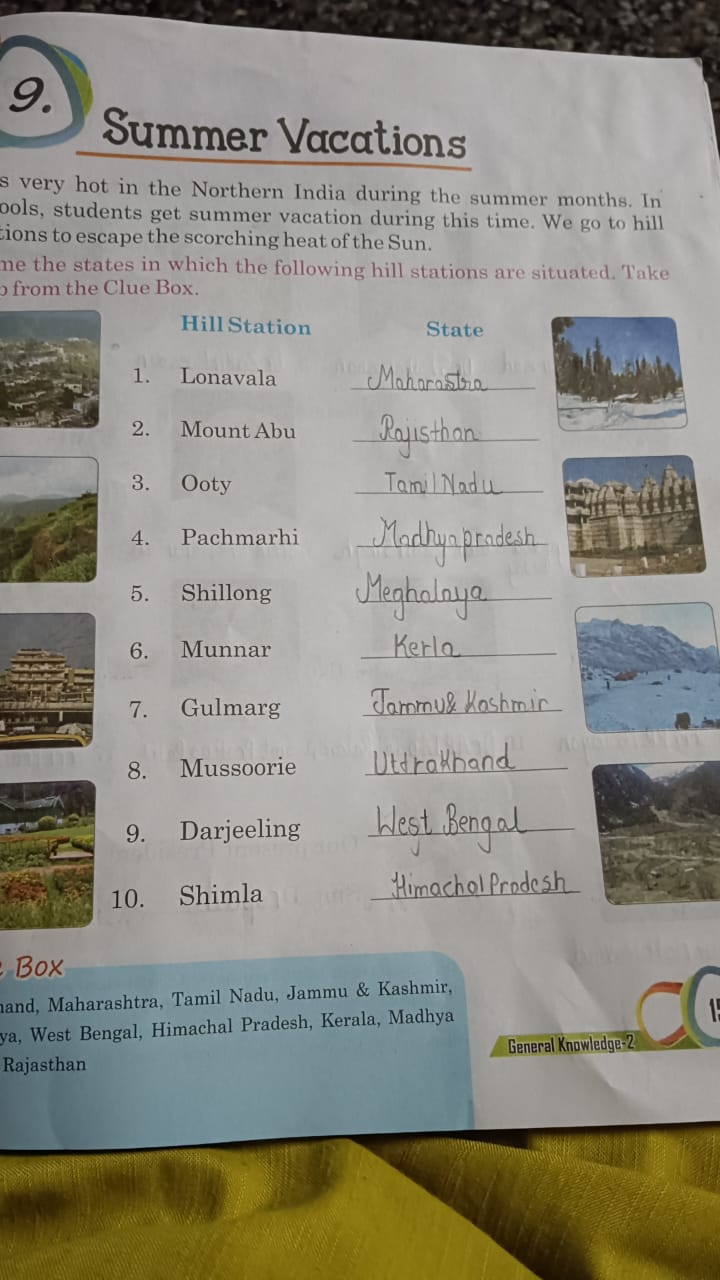 9.
Summer Vacations
s very hot in the Northern India during the summer months. In
ools, students get summer vacation during this time. We go to hill
tions to escape the scorching heat of the Sun.
me the states in which the following hill stations are situated. Take
p from the Clue Box.
Hill Station State
1. Lonavala Maharastra
2. Mount Abu Rajisthan
3. Ooty Tamil Nadu
4. Pachmarhi Madhya pradesh
5. Shillong Meghalaya
6. Munnar Kerla
7. Gulmarg Jammu & Kashmir
8. Mussoorie Uttrakhand
9. Darjeeling West Bengal
10. Shimla Himachal Pradesh
Box
hand, Maharashtra, Tamil Nadu, Jammu & Kashmir,
ya, West Bengal, Himachal Pradesh, Kerala, Madhya
Rajasthan
General Knowledge-2